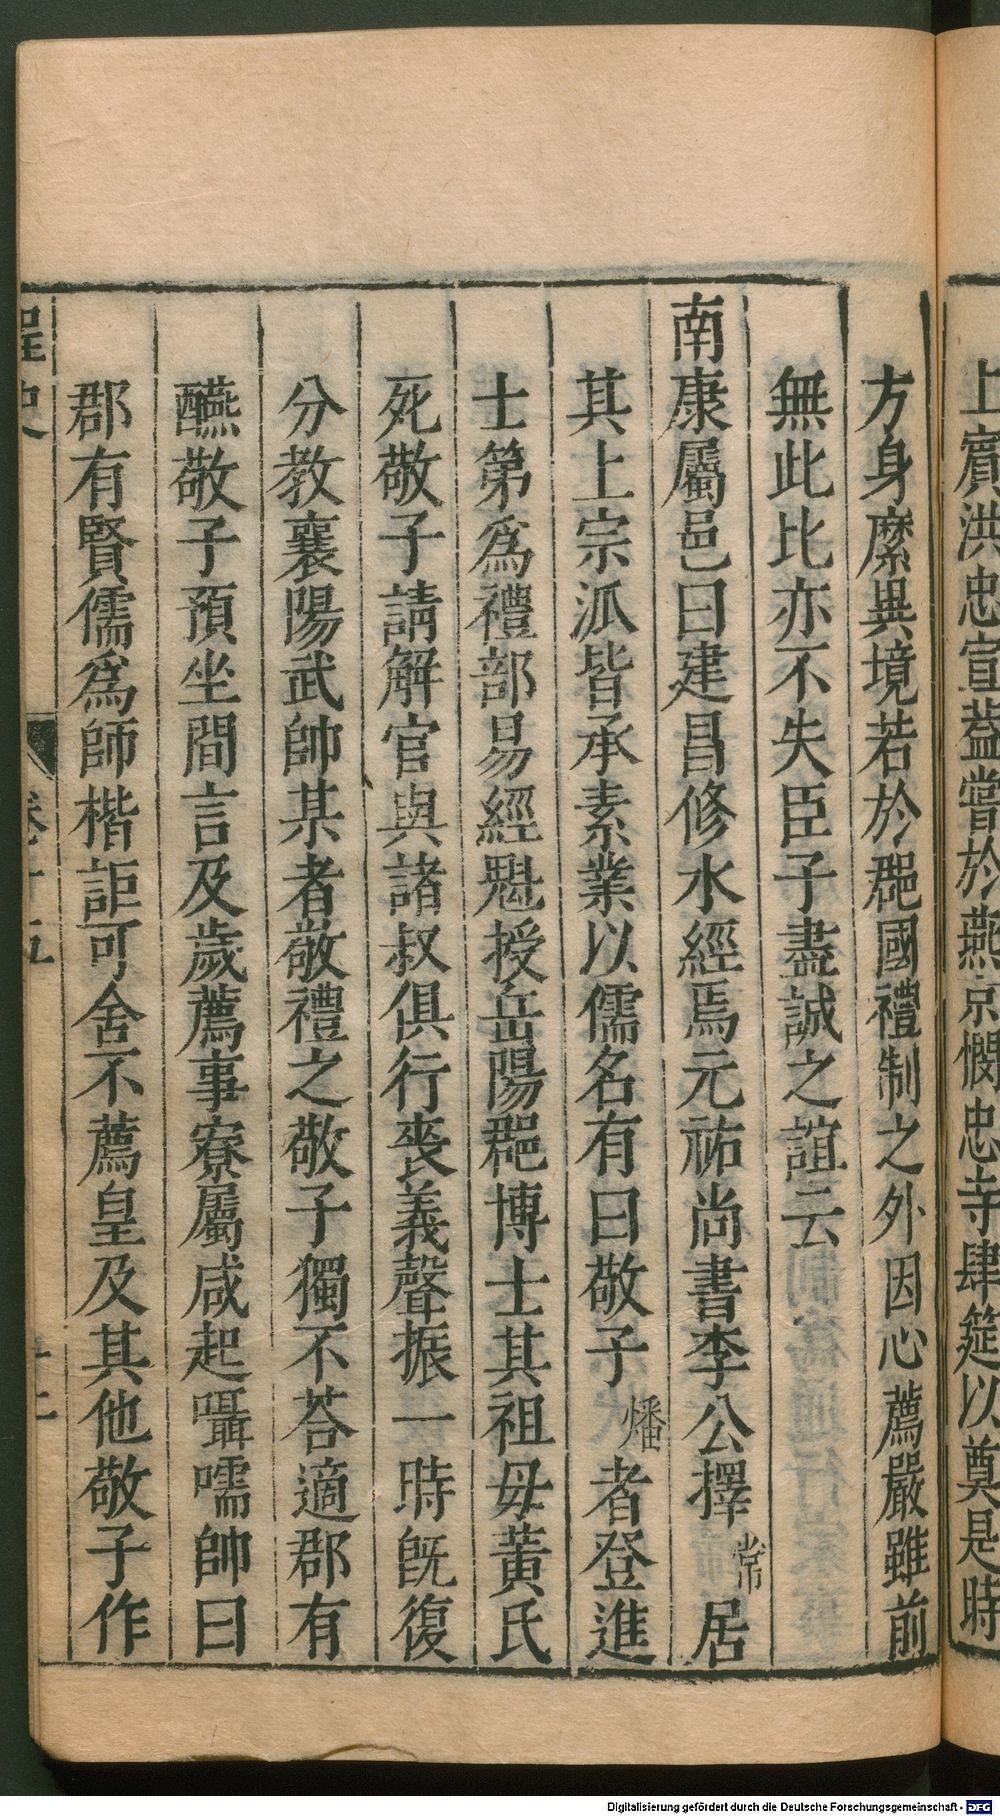 上賓洪忠宣葢嘗於燕京憫忠寺肆筵以奠是時
方身縻異境若於郡國禮制之外因心薦嚴雖前
無此比亦不失臣子盡誠之誼云
南康屬邑曰建昌修水經焉元祐尚書李公擇常居
其上宗派皆承素業以儒名有曰敬子燔者登進
士第爲禮部易經魁授岳陽郡博士其祖母黃氏
死敬子請解官與諸叔俱行喪義聲振一時旣復
分教襄陽武帥某者敬禮之敬子獨不荅適郡有
醼敬子預坐間言及歲薦事寮屬咸起囁嚅帥曰
郡有賢儒爲師楷詎可舍不薦皇及其他敬子作
桯史
卷十五
十二
Digitalisierung gefördert durch die Deutsche Forschungsgemeinschaft - DFG